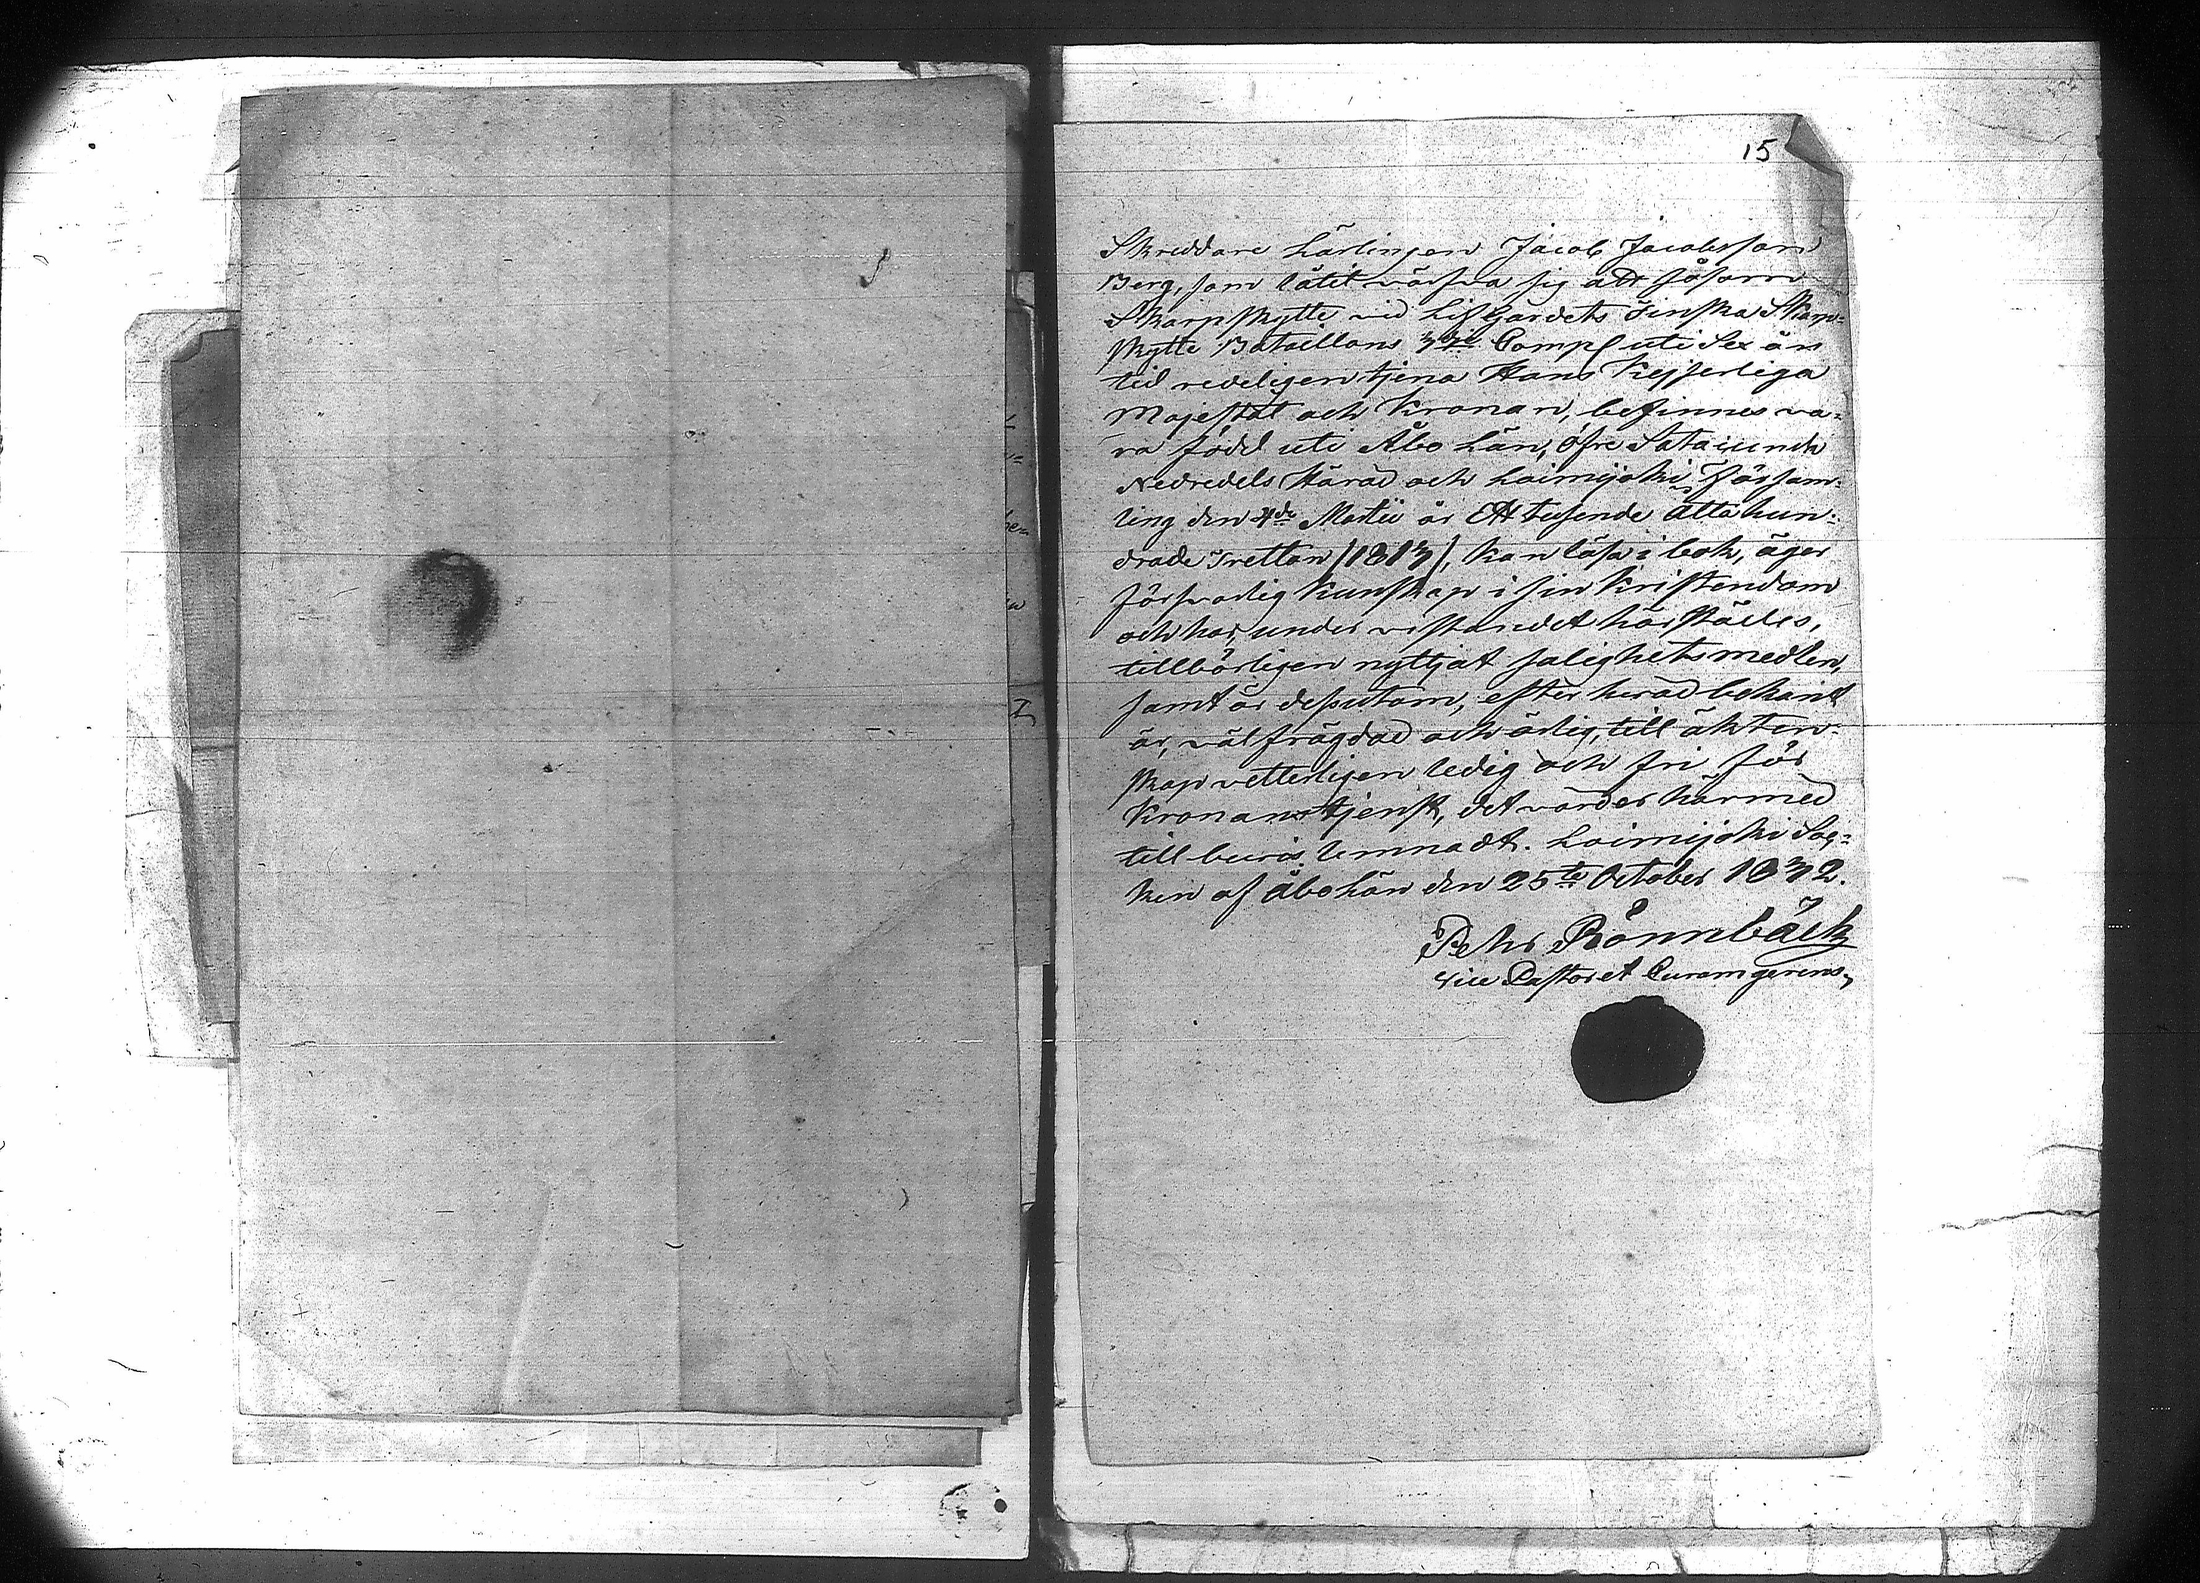 15
Skreddare Lärlingen Jacob Jacobsson
Berg, som låtit värfva sig att såsom
Skarpskytte vid Lif Gardets Finska Skarp-
skytte Bataillons 3dje Comp. uti Sex års
tid redeligen tjena Hans Kejserliga
Majestät och Kronan, befinnes va-
ra född uti Åbo Län, öfre Satacunda
Nedredels Härad och Loimijoki Församl-
ling den 4de Martii år Ett tusende åtta hun-
drade tretton (1813), kan läsa i bok, äger
försvarlig kunskap i sin Kristendom
och har, under vistandet härstädes,
tillbörligen nyttjat salighetsmedlen,
samt är dessutom, efter hvad bekant
är, välfrägdad och ärlig, till äkten-
skap vetterligen ledig och fri för
Kronans tjenst, det varder härmed
till bevis lemnadt. Loimijoki Soc-
ken af Åbo Län den 25te October 1832.
Pehr Rönnbäck
Vice Pastor et Curam gerens